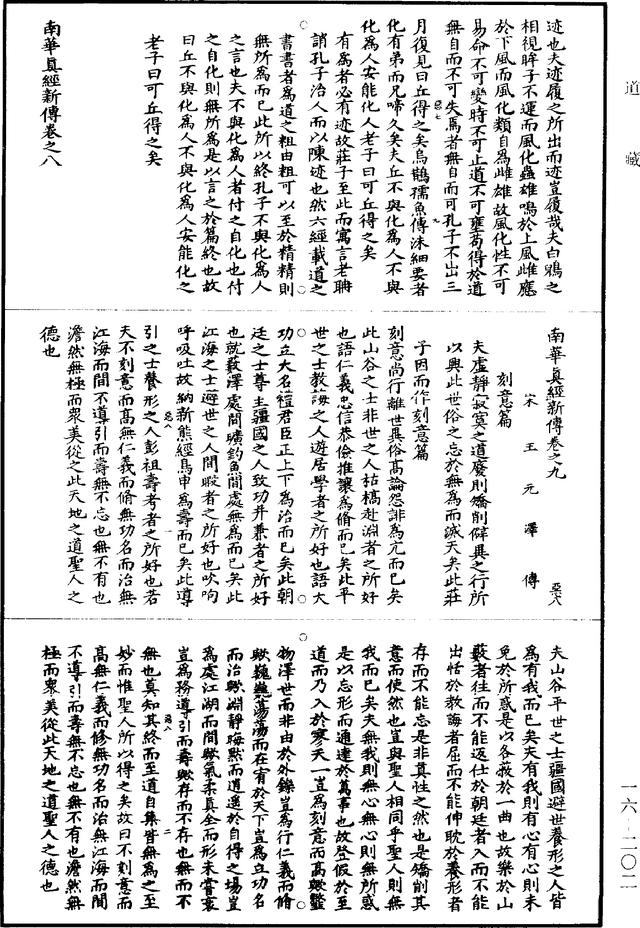 道藏
迹也夫迹履之所出而迹豈履哉夫白鶂之
相視眸子不運而風化蟲雄鳴於上風雌應
於下風而風化類自為雌雄故風化性不可
易命不可變時不可止道不可壅苟得於道
無自而不可失焉者無自而可孔子不出三
月復見曰丘得之矣烏鵲孺魚傅沫細要者
化有弟而兄啼久矣夫丘不與化為人不與
化為人安能化人老子曰可丘得之矣
有為者必有迹故莊子至此而寓言老聃
誚孔子治人而以陳迹也然六經載道之
書書者為道之粗由粗可以至於精精則
無所為而已此所以終孔子不與化為人
之言也夫不與化為人者付之自化也付
之自化則無所為是以言之於篇終也故
曰丘不與化為人不與化為人安能化之
老子曰可丘得之矣
南華真經新傳卷之八
南華真經新傳卷之九
惡八
宋王元澤傳
刻意篇
夫虛靜寂寞之道廢則矯削僻異之行所
以興此世俗之忘於無為而滅天矣此莊
子因而作刻意篇
刻意尚行離世異俗高論怨誹為亢而已矣
此山谷之士非世之人枯槁赴淵者之所好
也語仁義忠信恭儉推讓為脩而已矣此平
世之士教誨之人遊居學者之所好也語大
功立大名禮君臣正上下為治而已矣此朝
廷之士尊主彊國之人致功并兼者之所好
也就藪澤處閒曠釣魚閒處無為而已矣此
江海之士避世之人閒暇者之所好也吹呴
呼吸吐故納新熊經鳥申為壽而已矣此導
引之士養形之人彭祖壽考者之所好也若
夫不刻意而高無仁義而脩無功名而治無
江海而閒不導引而壽無不忘也無不有也
澹然無極而眾美從之此天地之道聖人之
德也
夫山谷平世之士彊國避世養形之人皆
為有我而已矣夫有我則有心有心則未
免於所惑是以各蔽於一曲也故樂於山
藪者往而不能返仕於朝廷者入而不能
出恬於教誨者屈而不能伸耽於養形者
存而不能忘是非真性之然也是矯削其
意而使然也豈與聖人相同乎聖人則無
我而已矣夫無我則無心無心則無所惑
是以忘形而通達於萬事也故登假於至
道而乃入於寥天一豈為刻意而高歟
物澤世而非由於外鑠豈為行仁義而脩
歟巍巍蕩蕩而在宥於天下豈為立功名
而治歟淵靜晦默而逍遙於自得之場豈
為處江湖而閒歟氣柔真全而形未嘗衰
豈為務導引而壽歟存而不存也無而不
無也莫知其終而至道自集皆無為之至
妙而惟聖人所以得之矣故曰不刻意而
高無仁義而修無功名而治無江海而閒
不導引而壽無不忘也無不有也澹然無
極而眾美從此天地之道聖人之德也
一六—二〇二